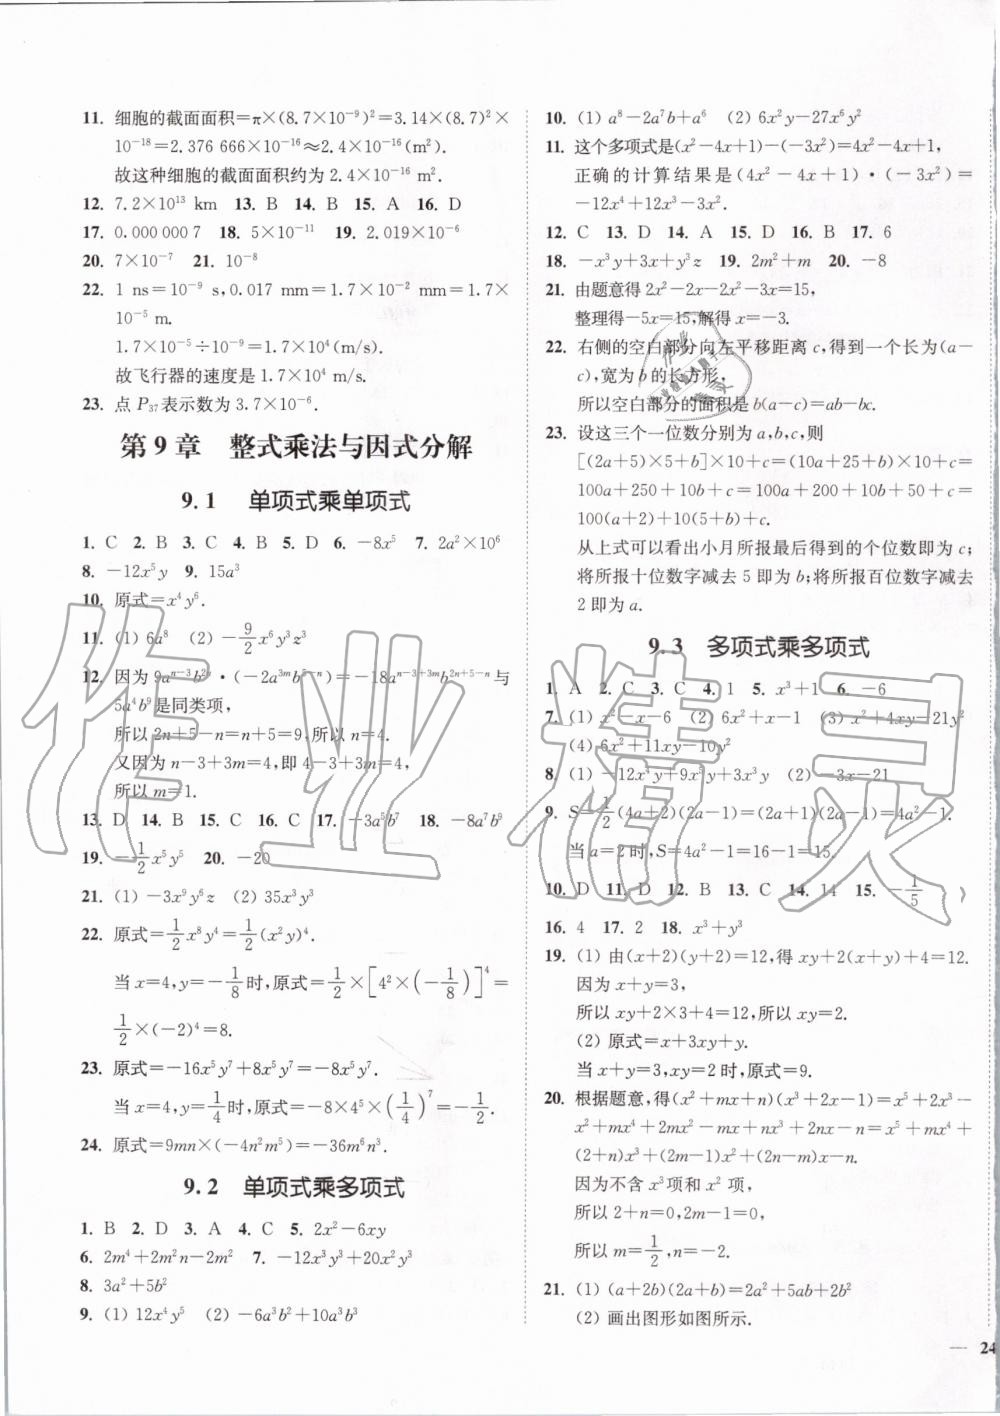 11. 细胞的截面面积=π×(8.7×10⁻⁹)²=3.14×(8.7)²×
10⁻¹⁸=2.376 666×10⁻¹⁶≈2.4×10⁻¹⁶(m²).
故这种细胞的截面面积约为 2.4×10⁻¹⁶ m².
12. 7.2×10¹³ km 13. B 14. B 15. A 16. D
17. 0.000 000 7 18. 5×10⁻¹¹ 19. 2.019×10⁻⁶
20. 7×10⁻⁷ 21. 10⁻⁸
22. 1 ns=10⁻⁹ s,0.017 mm=1.7×10⁻² mm=1.7×
10⁻⁵ m.
1.7×10⁻⁵÷10⁻⁹=1.7×10⁴(m/s).
故飞行器的速度是 1.7×10⁴ m/s.
23. 点 P₃₇表示数为 3.7×10⁻⁶.
第 9 章 整式乘法与因式分解
9.1 单项式乘单项式
1. C 2. B 3. C 4. B 5. D 6. −8x⁵ 7. 2a²×10⁶
8. −12x⁵y 9. 15a³
10. 原式=x⁴y⁶.
11. (1) 6a⁸ (2) −9/2x⁶y³z³
12. 因为 9aⁿ⁻³b²ⁿ·(−2a³ᵐb⁵⁻ⁿ)=−18aⁿ⁻³⁺³ᵐb²ⁿ⁺⁵⁻ⁿ与
5a⁴b⁹是同类项,
所以 2n+5−n=n+5=9,所以 n=4.
又因为 n−3+3m=4,即 4−3+3m=4,
所以 m=1.
13. D 14. B 15. C 16. C 17. −3a⁵b⁷ 18. −8a⁷b⁹
19. −1/2x⁵y⁵ 20. −20
21. (1) −3x⁹y⁶z (2) 35x³y³
22. 原式=1/2x⁸y⁴=1/2(x²y)⁴.
当 x=4,y=−1/8时,原式=1/2×[4²×(−1/8)]⁴=
1/2×(−2)⁴=8.
23. 原式=−16x⁵y⁷+8x⁵y⁷=−8x⁵y⁷.
当 x=4,y=1/4时,原式=−8×4⁵×(1/4)⁷=−1/2.
24. 原式=9mn×(−4n²m⁵)=−36m⁶n³.
9.2 单项式乘多项式
1. B 2. D 3. A 4. C 5. 2x²−6xy
6. 2m⁴+2m²n−2m² 7. −12x³y³+20x²y⁴
8. 3a²+5b²
9. (1) 12x⁴y⁵ (2) −6a³b²+10a³b³
10. (1) a⁸−2a⁷b+a⁶ (2) 6x²y−27x⁶y²
11. 这个多项式是(x²−4x+1)−(−3x²)=4x²−4x+1,
正确的计算结果是(4x²−4x+1)·(−3x²)=
−12x⁴+12x³−3x².
12. C 13. D 14. A 15. D 16. B 17. 6
18. −x³y+3x+y³z 19. 2m²+m 20. −8
21. 由题意得 2x²−2x−2x²−3x=15,
整理得−5x=15,解得 x=−3.
22. 右侧的空白部分向左平移距离 c,得到一个长为(a−
c),宽为 b 的长方形,
所以空白部分的面积是 b(a−c)=ab−bc.
23. 设这三个一位数分别为 a,b,c,则
[(2a+5)×5+b]×10+c=(10a+25+b)×10+c=
100a+250+10b+c=100a+200+10b+50+c=
100(a+2)+10(5+b)+c.
从上式可以看出小月所报最后得到的个位数即为 c;
将所报十位数字减去 5 即为 b;将所报百位数字减去
2 即为 a.
9.3 多项式乘多项式
1. A 2. C 3. C 4. 1 5. x³+1 6. −6
7. (1) x²−x−6 (2) 6x²+x−1 (3) x²+4xy−21y²
(4) 6x²+11xy−10y²
8. (1) −12x⁴y+9x²y+3x³y (2) −3x−21
9. S=1/2(4a+2)(2a−1)=(2a+1)(2a−1)=4a²−1.
当 a=2 时,S=4a²−1=16−1=15.
10. D 11. D 12. B 13. C 14. 14 15. −1/5
16. 4 17. 2 18. x³+y³
19. (1) 由(x+2)(y+2)=12,得 xy+2(x+y)+4=12.
因为 x+y=3,
所以 xy+2×3+4=12,所以 xy=2.
(2) 原式=x+3xy+y.
当 x+y=3,xy=2 时,原式=9.
20. 根据题意,得(x²+mx+n)(x³+2x−1)=x⁵+2x³−
x²+mx⁴+2mx²−mx+nx³+2nx−n=x⁵+mx⁴+
(2+n)x³+(2m−1)x²+(2n−m)x−n.
因为不含 x³项和 x² 项,
所以 2+n=0,2m−1=0,
所以 m=1/2,n=−2.
21. (1) (a+2b)(2a+b)=2a²+5ab+2b²
(2) 画出图形如图所示.
— 24
作业精灵